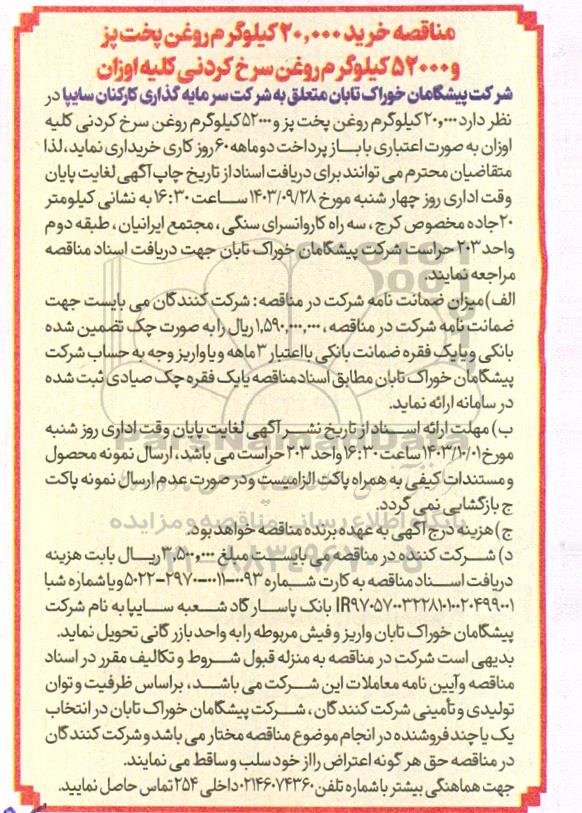 مناقصه خرید ۲۰,۰۰۰ کیلوگرم روغن پخت پز
و ۵۲۰۰۰ کیلوگرم روغن سرخ کردنی کلیه اوزان
شرکت پیشگامان خوراک تابان متعلق به شرکت سرمایه گذاری کارکنان سایپا در
نظر دارد ۲۰,۰۰۰ کیلوگرم روغن پخت پز و ۵۲۰۰۰ کیلوگرم روغن سرخ کردنی کلیه
اوزان به صورت اعتباری با باز پرداخت دو ماهه ۶۰ روز کاری خریداری نماید، لذا
متقاضیان محترم می توانند برای دریافت اسناد از تاریخ چاپ آگهی لغایت پایان
وقت اداری روز چهار شنبه مورخ ۱۴۰۳/۰۹/۲۸ ساعت ۱۶:۳۰ به نشانی کیلومتر
۲۰ جاده مخصوص کرج ، سه راه کاروانسرای سنگی ، مجتمع ایرانیان ، طبقه دوم
واحد ۲۰۳ حراست شرکت پیشگامان خوراک تابان جهت دریافت اسناد مناقصه
مراجعه نمایند.
الف) میزان ضمانت نامه شرکت در مناقصه: شرکت کنندگان می بایست جهت
ضمانت نامه شرکت در مناقصه ، ۱,۵۹۰,۰۰۰,۰۰۰ ریال را به صورت چک تضمین شده
بانکی و یا یک فقره ضمانت بانکی با اعتبار ۳ ماهه و یا واریز وجه به حساب شرکت
پیشگامان خوراک تابان مطابق اسناد مناقصه یا یک فقره چک صیادی ثبت شده
در سامانه ارائه نماید.
ب) مهلت ارائه اسناد از تاریخ نشر آگهی لغایت پایان وقت اداری روز شنبه
مورخ ۱۴۰۳/۱۰/۰۱ ساعت ۱۶:۳۰ واحد ۲۰۳ حراست می باشد ، ارسال نمونه محصول
و مستندات کیفی به همراه پاکت الزامیست و در صورت عدم ارسال نمونه پاکت
ج بازگشایی نمی گردد.
ج) هزینه درج آگهی به عهده برنده مناقصه خواهد بود.
د) شرکت کننده در مناقصه می بایست مبلغ ۳,۵۰۰,۰۰۰ ریال بابت هزینه
دریافت اسناد مناقصه به کارت شماره ۵۰۲۲-۲۹۷۰-۰۰۱۱-۰۰۹۳ و یا شماره شبا
بانک پاسارگاد شعبه سایپا به نام شرکت
پیشگامان خوراک تابان واریز و فیش مربوطه را به واحد بازرگانی تحویل نماید.
بدیهی است شرکت در مناقصه به منزله قبول شروط و تکالیف مقرر در اسناد
مناقصه و آیین نامه معاملات این شرکت می باشد ، براساس ظرفیت و توان
تولیدی و تأمینی شرکت کنندگان ، شرکت پیشگامان خوراک تابان در انتخاب
یک یا چند فروشنده در انجام موضوع مناقصه مختار می باشد و شرکت کنندگان
در مناقصه حق هر گونه اعتراض را از خود سلب و ساقط می نمایند.
جهت هماهنگی بیشتر با شماره تلفن ۰۲۱۴۶۰۷۴۳۶۰ داخلی ۲۵۴ تماس حاصل نمایید.
ParsNamadData
پایگاه اطلاع رسانی مناقصه و مزایده
۰۲۱-۸۸۳۴۹۶۷۰-۵